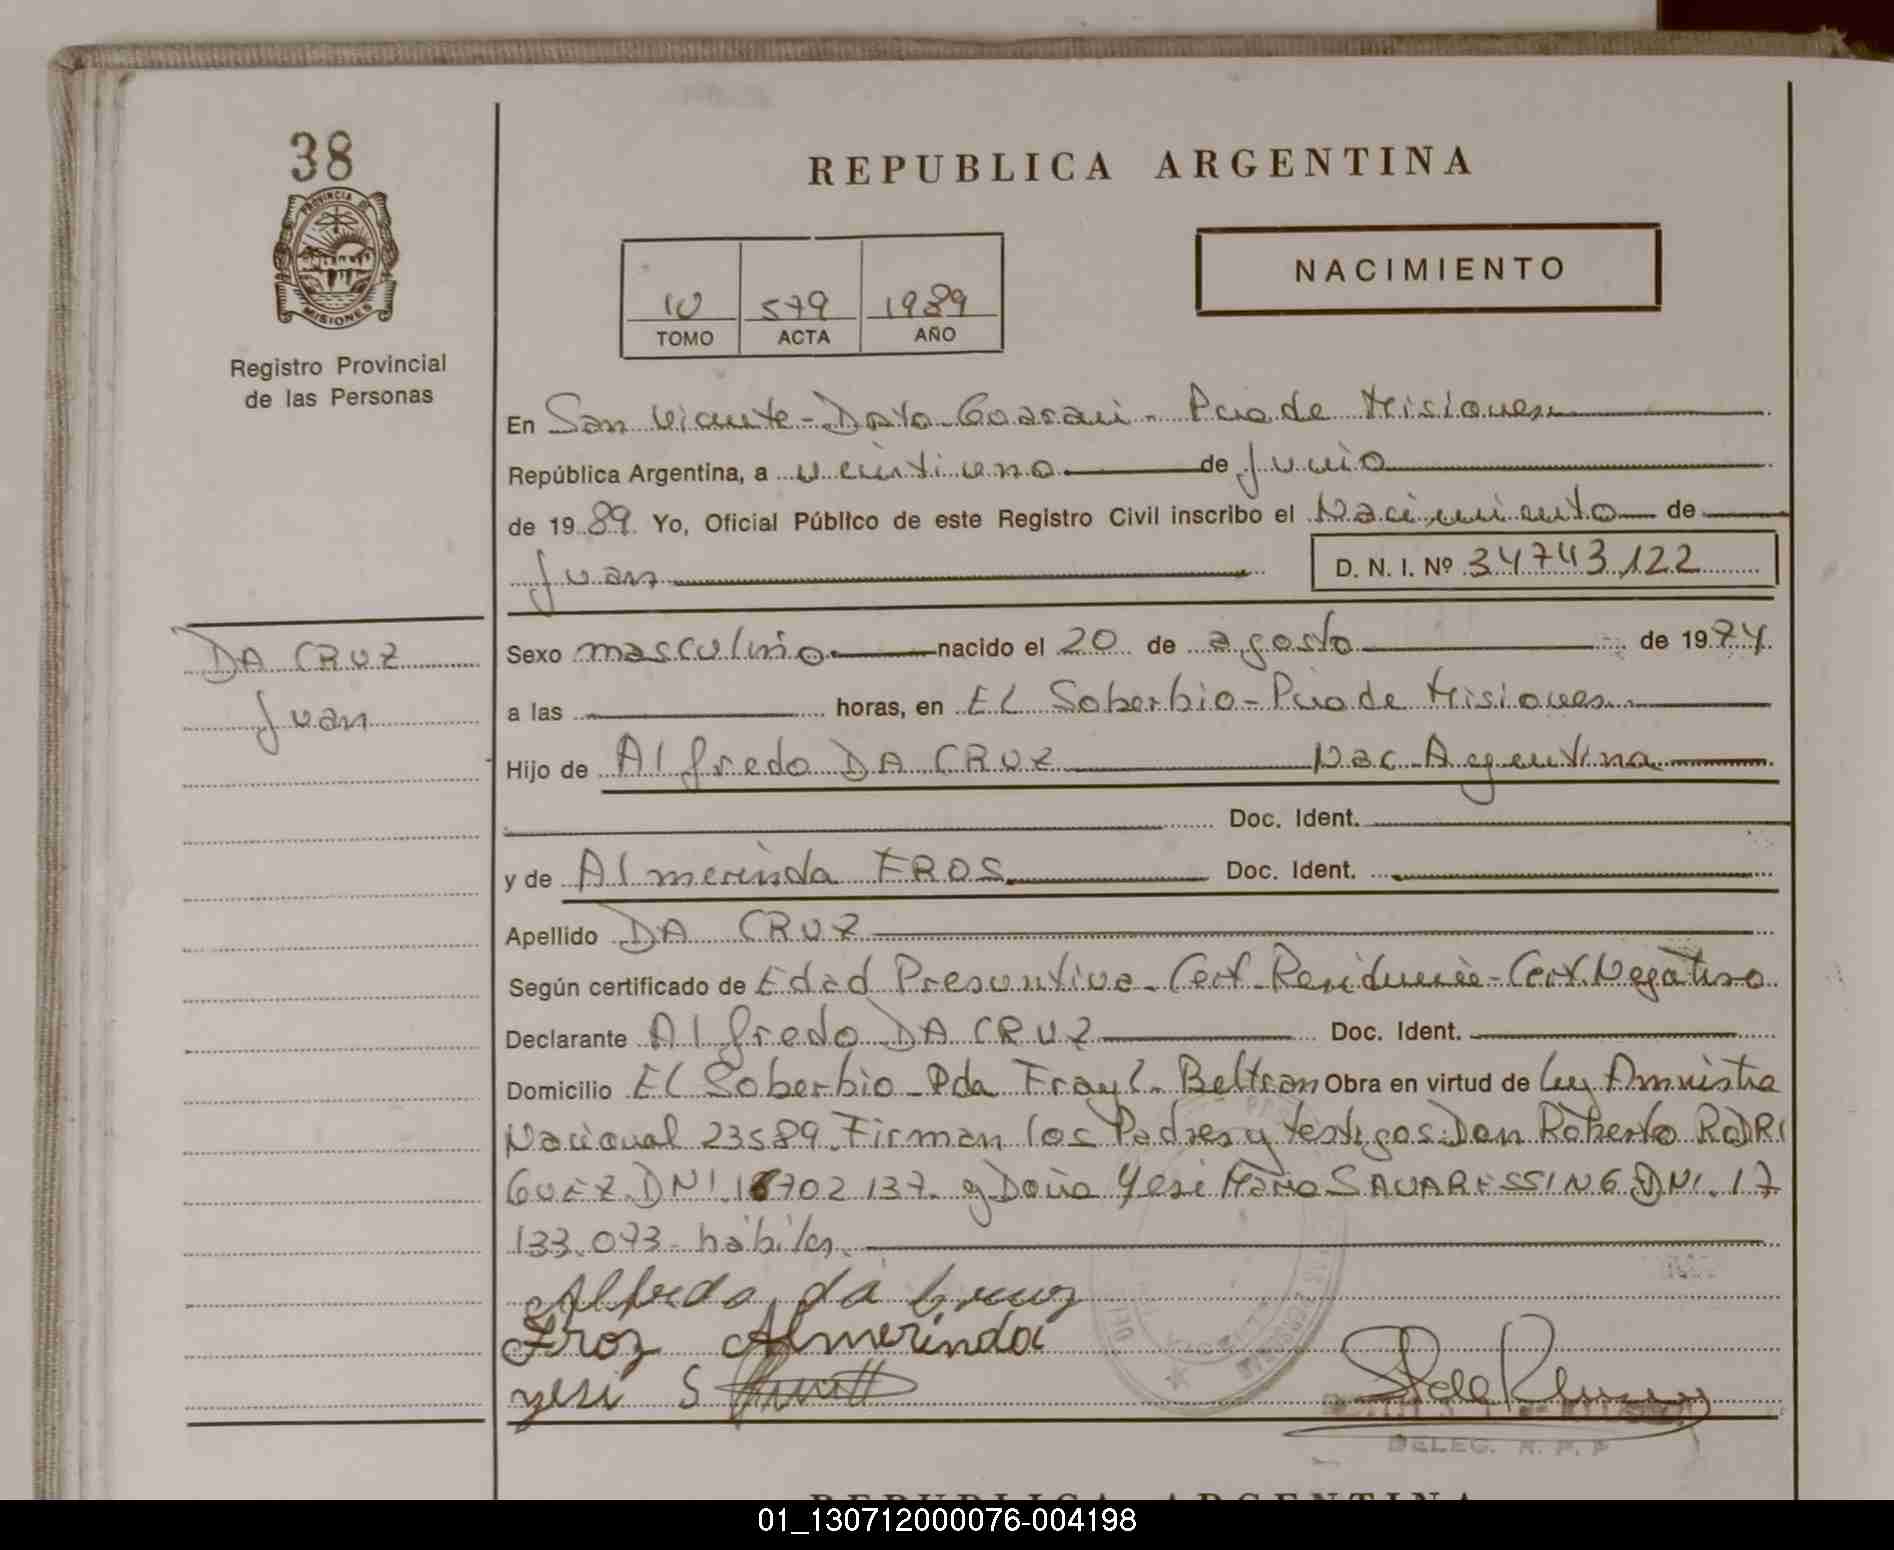 38
PROVINCIA DE
MISIONES
Registro Provincial
de las Personas
REPUBLICA ARGENTINA
NACIMIENTO
10 579 1989
TOMO ACTA AÑO
En San Vicente - Dpto Guarani - Pcia de Misiones
República Argentina, a veintiuno de Junio
de 1989 Yo, Oficial Público de este Registro Civil inscribo el Nacimiento de
Juan D. N. I. Nº 34743122
DA CRUZ
Juan
Sexo masculino nacido el 20 de agosto de 1974
a las horas, en EL Soberbio - Pcia de Misiones
Hijo de Alfredo DA CRUZ Nac. Argentina
Doc. Ident.
y de Almerinda FROS Doc. Ident.
Apellido DA CRUZ
Según certificado de Edad Presuntiva - Cert. Residencia - Cert. Negativo
Declarante Alfredo DA CRUZ Doc. Ident.
Domicilio EL Soberbio - Pda Fray L. Beltran Obra en virtud de Ley Amnistia
Nacional 23589. Firman los Padres y testigos: Don Roberto RODRI
GUEZ. DNI. 16702 137. y Doña Yesi Maria SAVARESSING DNI. 17
133.073 - hábiles.
Alfredo da Cruuz
Froz Almerinda
yesi S
DELEG. R. P. P
REPUBLICA ARGENTINA
01_130712000076-004198